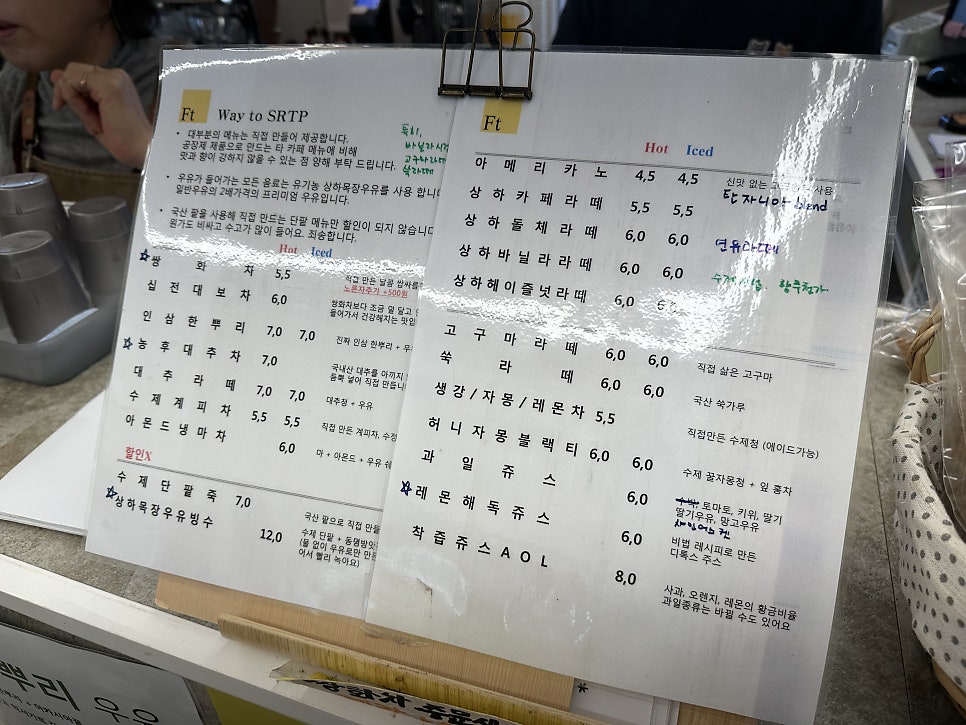 Ft Way to SRTP
• 대부분의 메뉴는 직접 만들어 제공합니다.
공장제 제품으로 만드는 타 카페 메뉴에 비해
맛과 향이 강하지 않을 수 있는 점 양해 부탁 드립니다.
특히,
바닐라시럽
고구마라떼
쑥라떼
• 우유가 들어가는 모든 음료는 유기농 상하목장우유를 사용 합니다
일반우유의 2배가격의 프리미엄 우유입니다.
• 국산 팥을 사용해 직접 만드는 단팥 메뉴만 할인이 되지 않습니다
원가도 비싸고 수고가 많이 들어요. 죄송합니다.
Hot Iced
☆쌍 화 차 5,5 직접 만든 달콤 쌉싸름
노른자추가 +500원
십전대보차 6,0 쌍화차보다 조금 덜 달고
들어가서 건강해지는 맛입
인삼한뿌리 7,0 7,0 진짜 인삼 한뿌리 + 우
☆농후대추차 7,0 국내산 대추를 아끼지
듬뿍 넣어 직접 만듭니
대추라떼 7,0 7,0 대추청 + 우유
수제계피차 5,5 5,5 직접 만든 계피차, 수정
아몬드냉마차 6,0 마 + 아몬드 + 우유
할인X
수제단팥죽 7,0 국산 팥으로 직접 만들
☆상하목장우유빙수 12,0 수제 단팥 + 동명방앗
(물 없이 우유로만 만든
어서 빨리 녹아요)
Ft
Hot Iced
아메리카노 4,5 4,5 신맛 없는 사용
탄자니아 blend
상하카페라떼 5,5 5,5
상하돌체라떼 6,0 6,0 연유라떼
상하바닐라라떼 6,0 6,0 수제시럽. 향추천가
상하헤이즐넛라떼 6,0
고구마라떼 6,0 6,0 직접 삶은 고구마
쑥 라 떼 6,0 6,0 국산 쑥가루
생강/자몽/레몬차 5,5 직접만든 수제청 (에이드가능)
허니자몽블랙티 6,0 6,0 수제 꿀자몽청 + 잎 홍차
과 일 쥬 스 6,0 토마토, 키위, 딸기
딸기우유, 망고우유
☆레몬해독쥬스 6,0 비법 레시피로 만든
디톡스 주스
착즙쥬스AOL 8,0 사과, 오렌지, 레몬의 황금비율
과일종류는 바뀔 수도 있어요
뿌리 우유